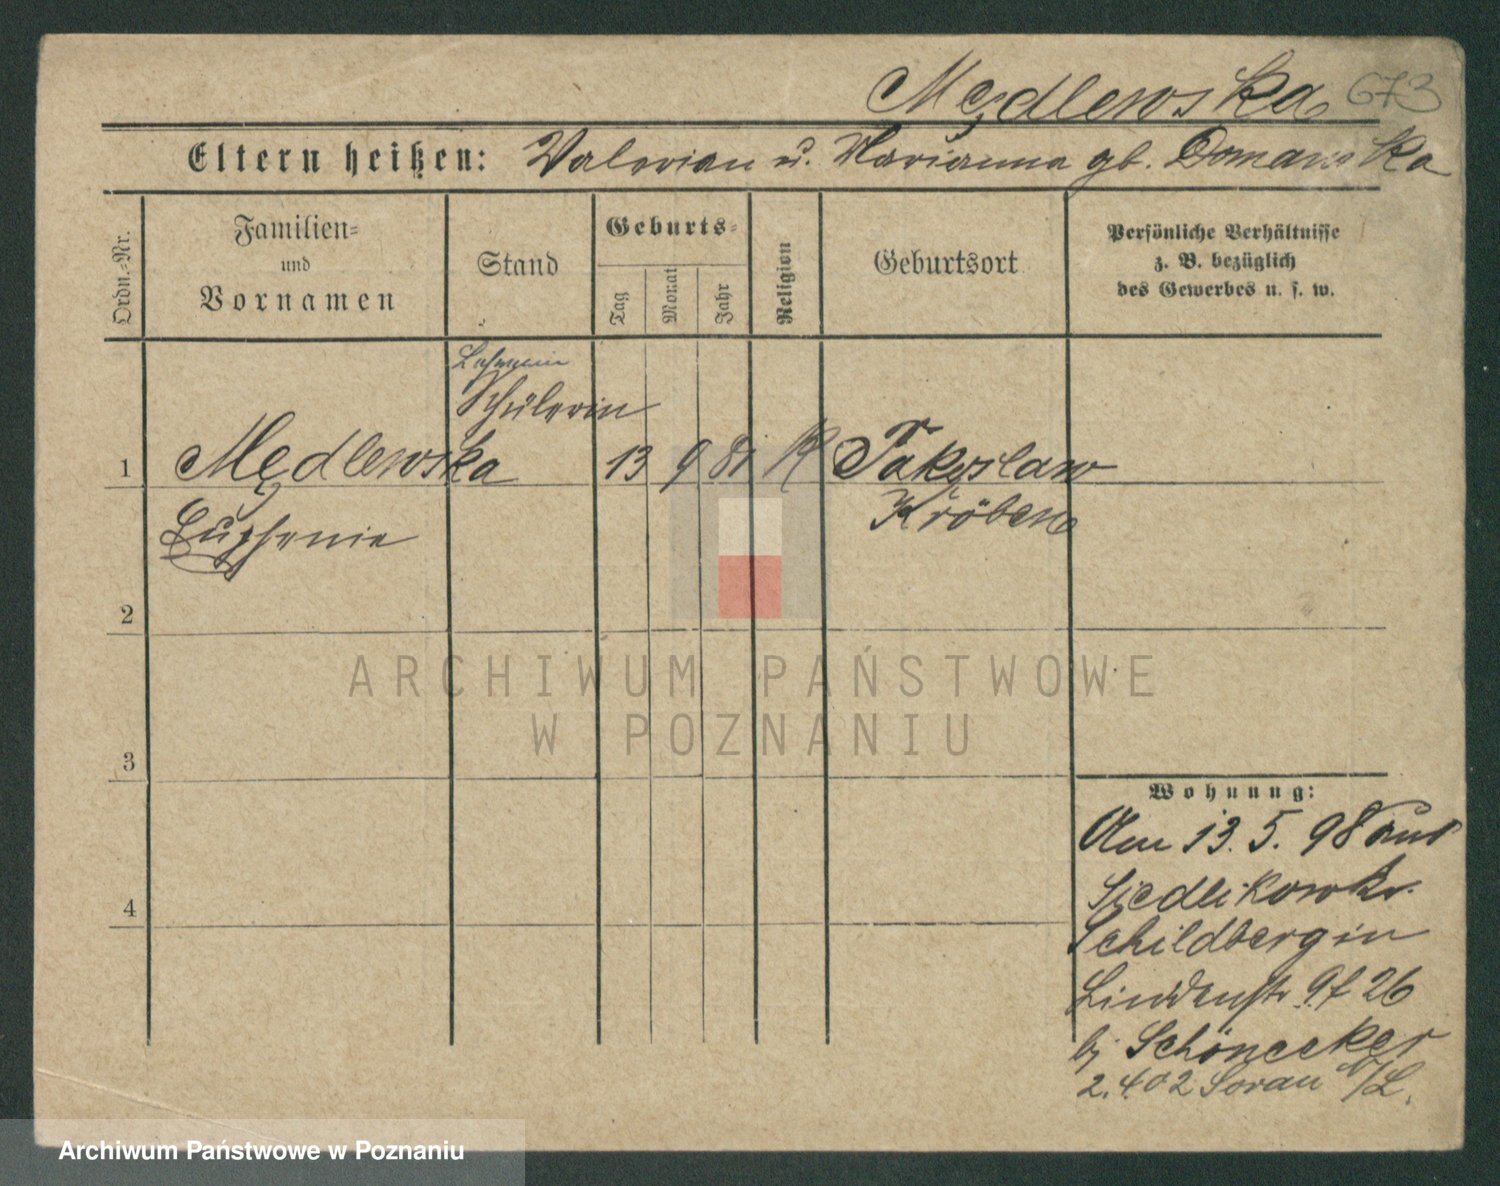 Mędlewska 673
Eltern heißen: Valerian u. Marianna gb. Domanska
Ordn.-Nr.
Familien-
und
Vornamen
Stand
Geburts-
Tag
Monat
Jahr
Religion
Geburtsort
Persönliche Verhältnisse
z. B. bezüglich
des Gewerbes u. s. w.
Lehrerin
Schülerin
1 Mędlewska 13 9 81 K
Euphemie Kröben
2
3
4
ARCHIWUM PAŃSTWOWE
W POZNANIU
Wohnung:
Am 13. 5. 98 aus
Siedlikow Kr.
Schildberg in
Lindenstr 9 f 26
bj Schönecker
2. 4. 02 Sorau N/L.
Archiwum Państwowe w Poznaniu